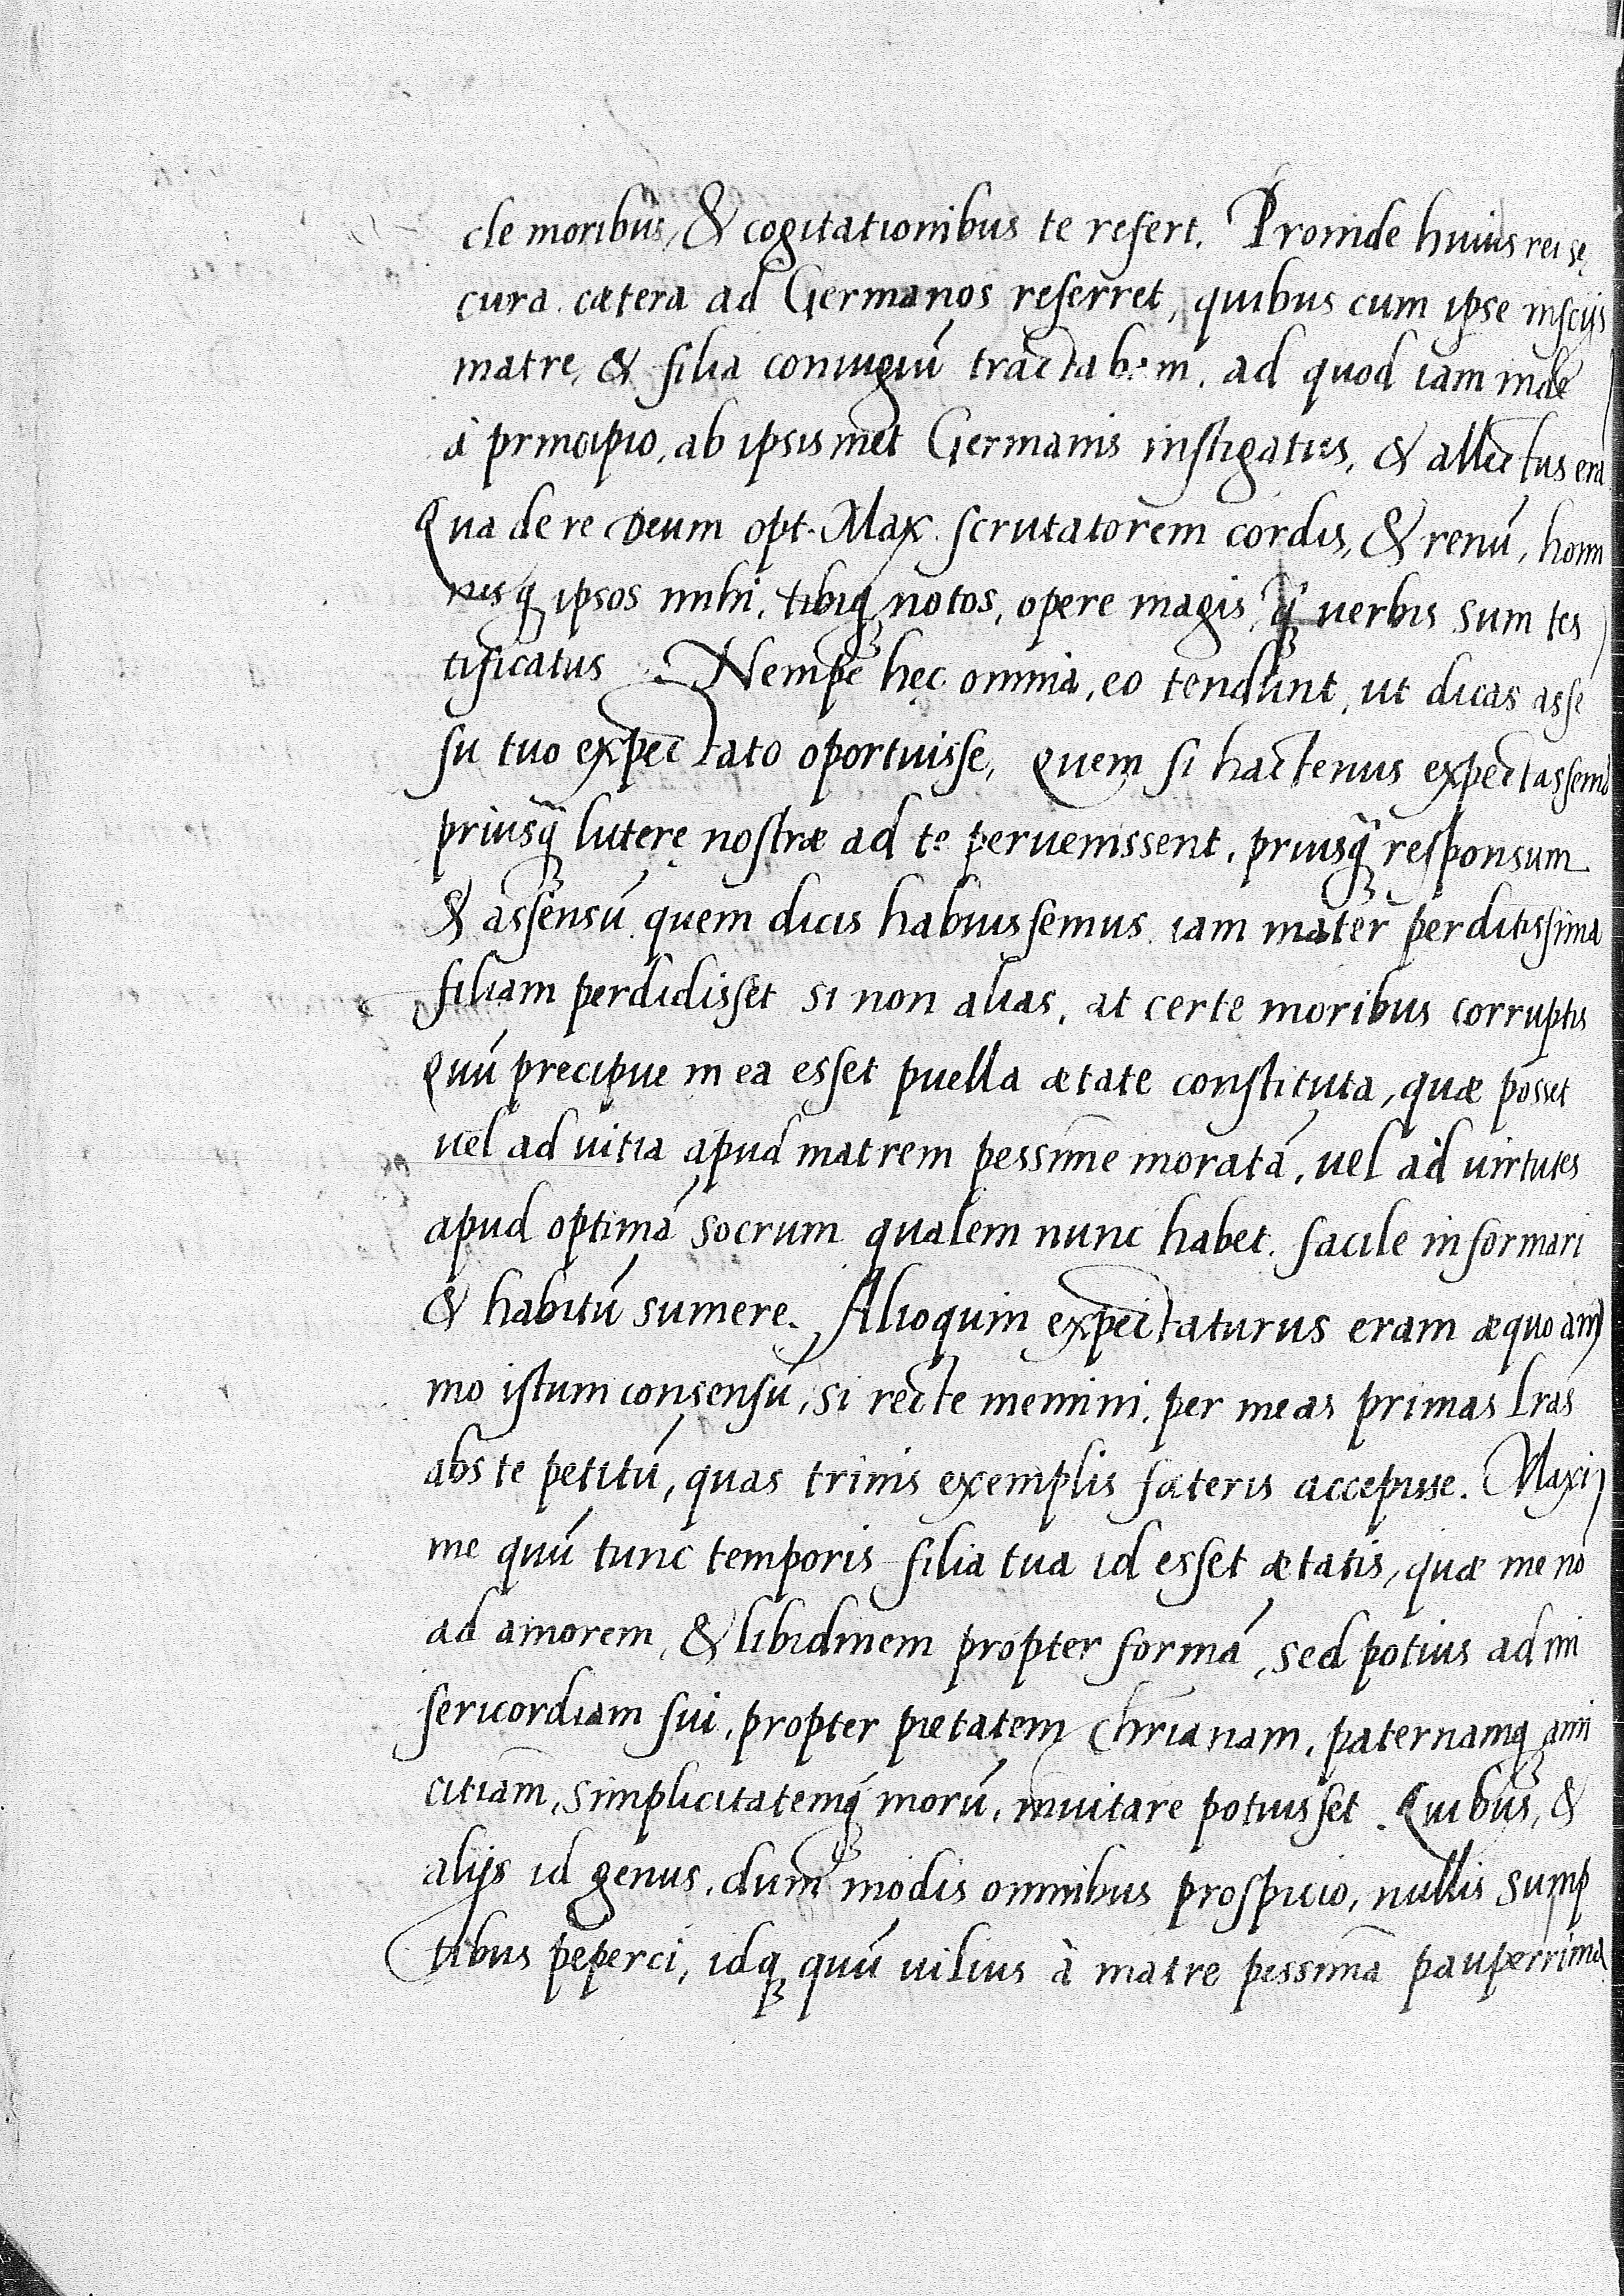 de moribus, & cogitationibus te refert. Proinde huius rei se
cura. cætera ad Germanos referret, quibus cum ipse insciis
matre, & filia coniugiū tractabam, ad quod iam inde
à principio, ab ipsismet Germanis instigatus, & allectus erā
Qua de re Deum opt. Max. scrutatorem cordis, & renū, homi
nesq ipsos mihi, tibiq notos, opere magis, q̄ uerbis sum tes
tificatus. Nempe hęc omnia, eo tendunt, ut dicas asse
su tuo expectato oportuisse, Quem si hactenus expectassem
priusq̄ litterę nostræ ad te peruenissent, priusq̄ responsum
& assensū quem dicis habuissemus iam mater perditissima
filiam perdidisset si non alias, at certe moribus corruptis
Quū precipue in ea esset puella ætate constituta, quæ posset
uel ad uitia apud matrem pessime moratā, uel ad uirtutes
apud optimā socrum qualem nunc habet. facile informari
& habitū sumere. Alioquin expectaturus eram æquo ani
mo istum consensū, si recte memini, per meas primas lras
abs te petitū, quas trinis exemplis fateris accepisse. Maxi
me quū tunc temporis filia tua id esset ætatis, quæ me nō
ad amorem, & libidinem propter formā, sed potius ad mi
sericordiam sui, propter pietatem chrianam, paternamq ami
citiam, simplicitatemq morū, inuitare potuisset. Quibus, &
alijs id genus, dum modis omnibus prospicio, nullis sump
tibus peperci, idq quū uilius à matre pessima pauperrima